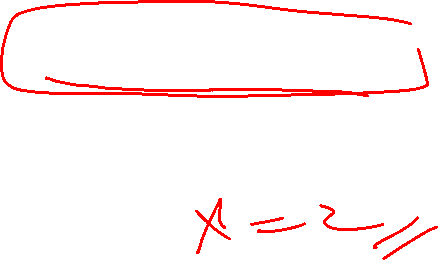 x = 2